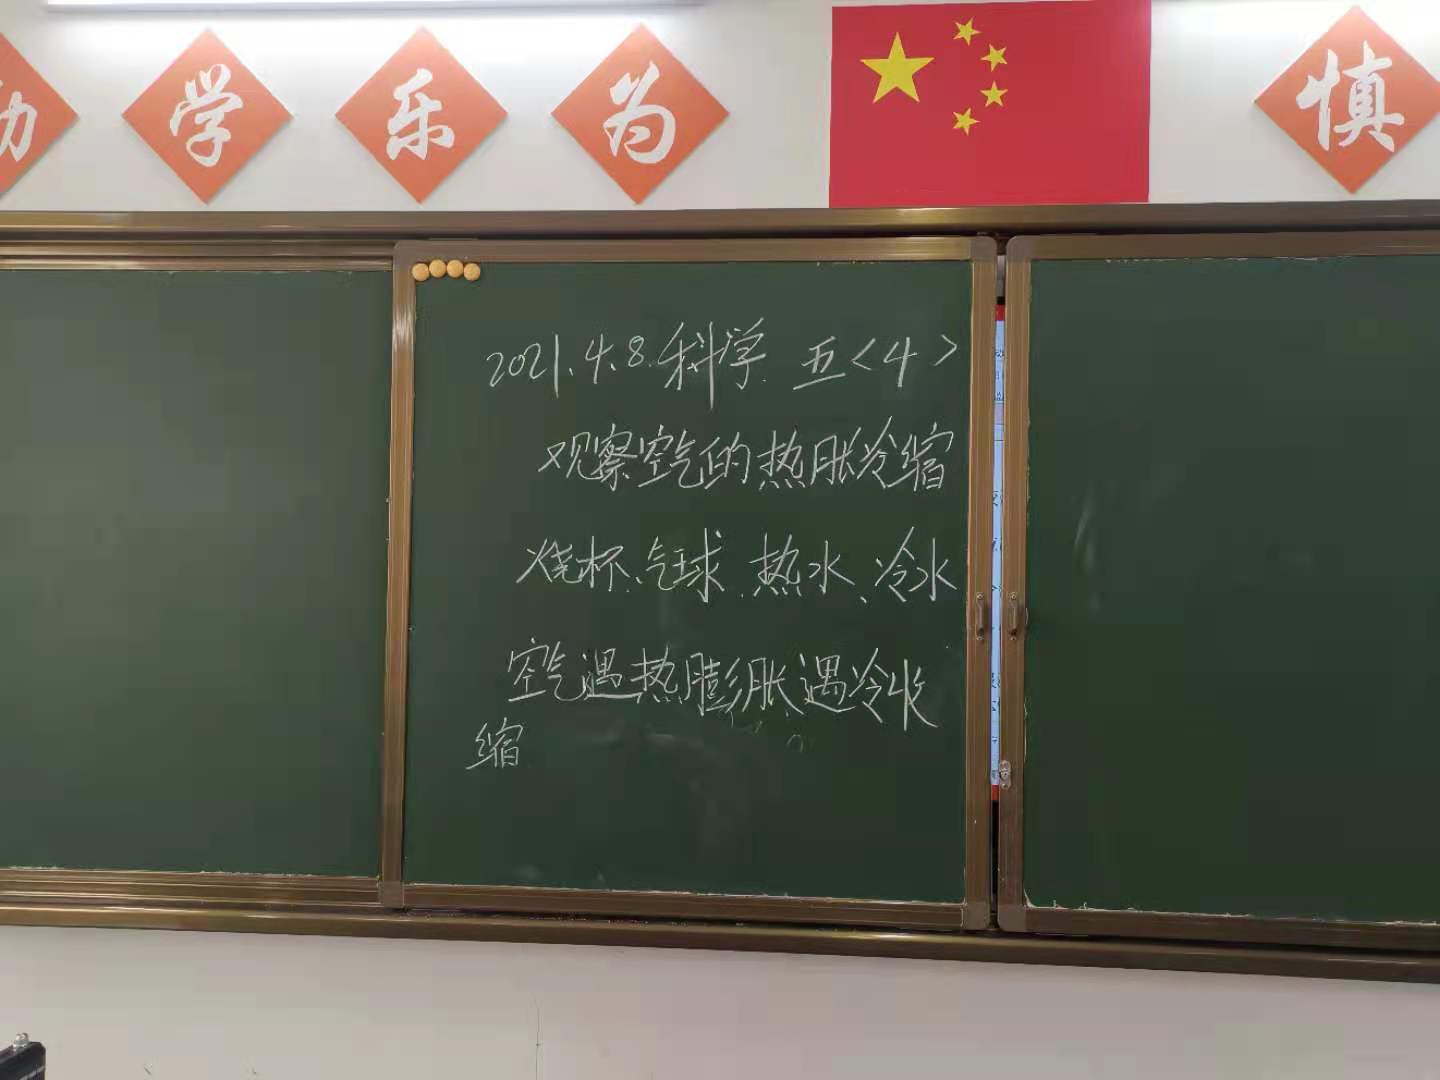 学 乐 为 慎
2021.4.8.科学. 五<4>
观察空气的热胀冷缩
烧杯、气球、热水、冷水
空气遇热膨胀遇冷收
缩